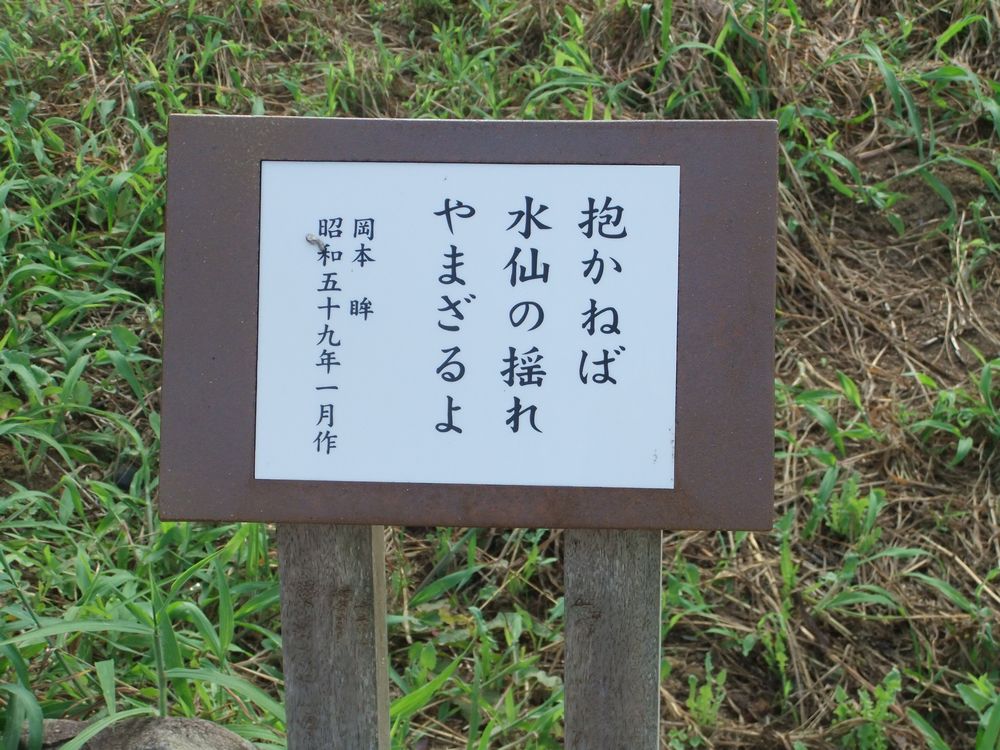 抱かねば
水仙の揺れ
やまざるよ
岡本 眸
昭和五十九年一月作